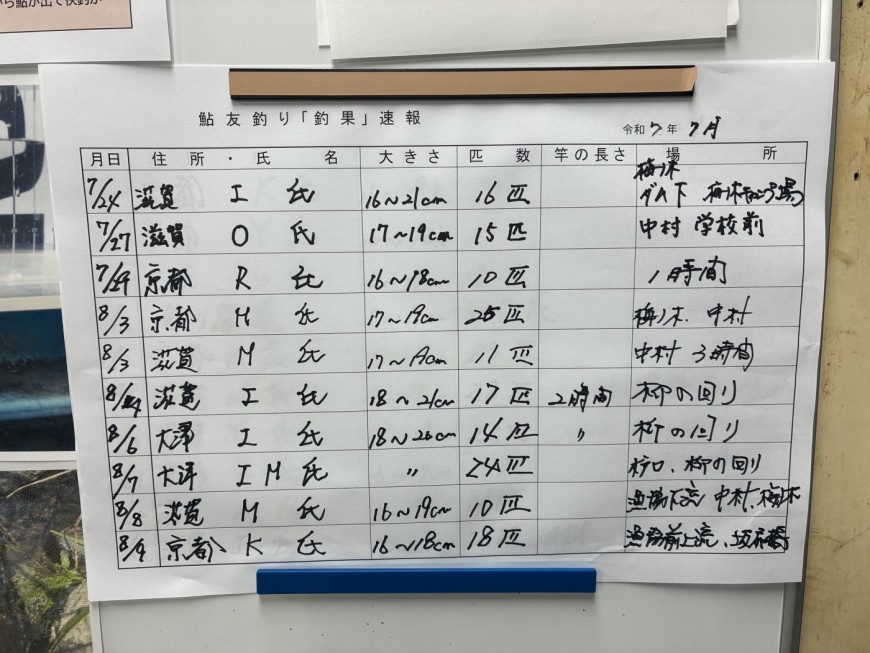 ら鮎が出て
鮎友釣り「釣果」速報
令和7年 7月
月日 住所・氏名 大きさ 匹数 竿の長さ 場所
7/24 滋賀 I 氏 16~21cm 16匹 梅ノ木ダム下
7/27 滋賀 O 氏 17~19cm 15匹 中村 学校前
7/29 京都 R 氏 16~18cm 10匹 1時間
8/3 京都 M 氏 17~19cm 25匹 梅ノ木、中村
8/3 滋賀 M 氏 17~19cm 11匹 中村 3時間
滋賀 I 氏 18~21cm 17匹 2時間 柳の回り
8/6 大津 I 氏 18~20cm 14匹 〃 柳の回り
8/7 大津 I M 氏 〃 24匹 柳の回り
8/8 滋賀 M 氏 16~19cm 10匹 中村、梅ノ木
8/9 京都 K 氏 16~18cm 18匹